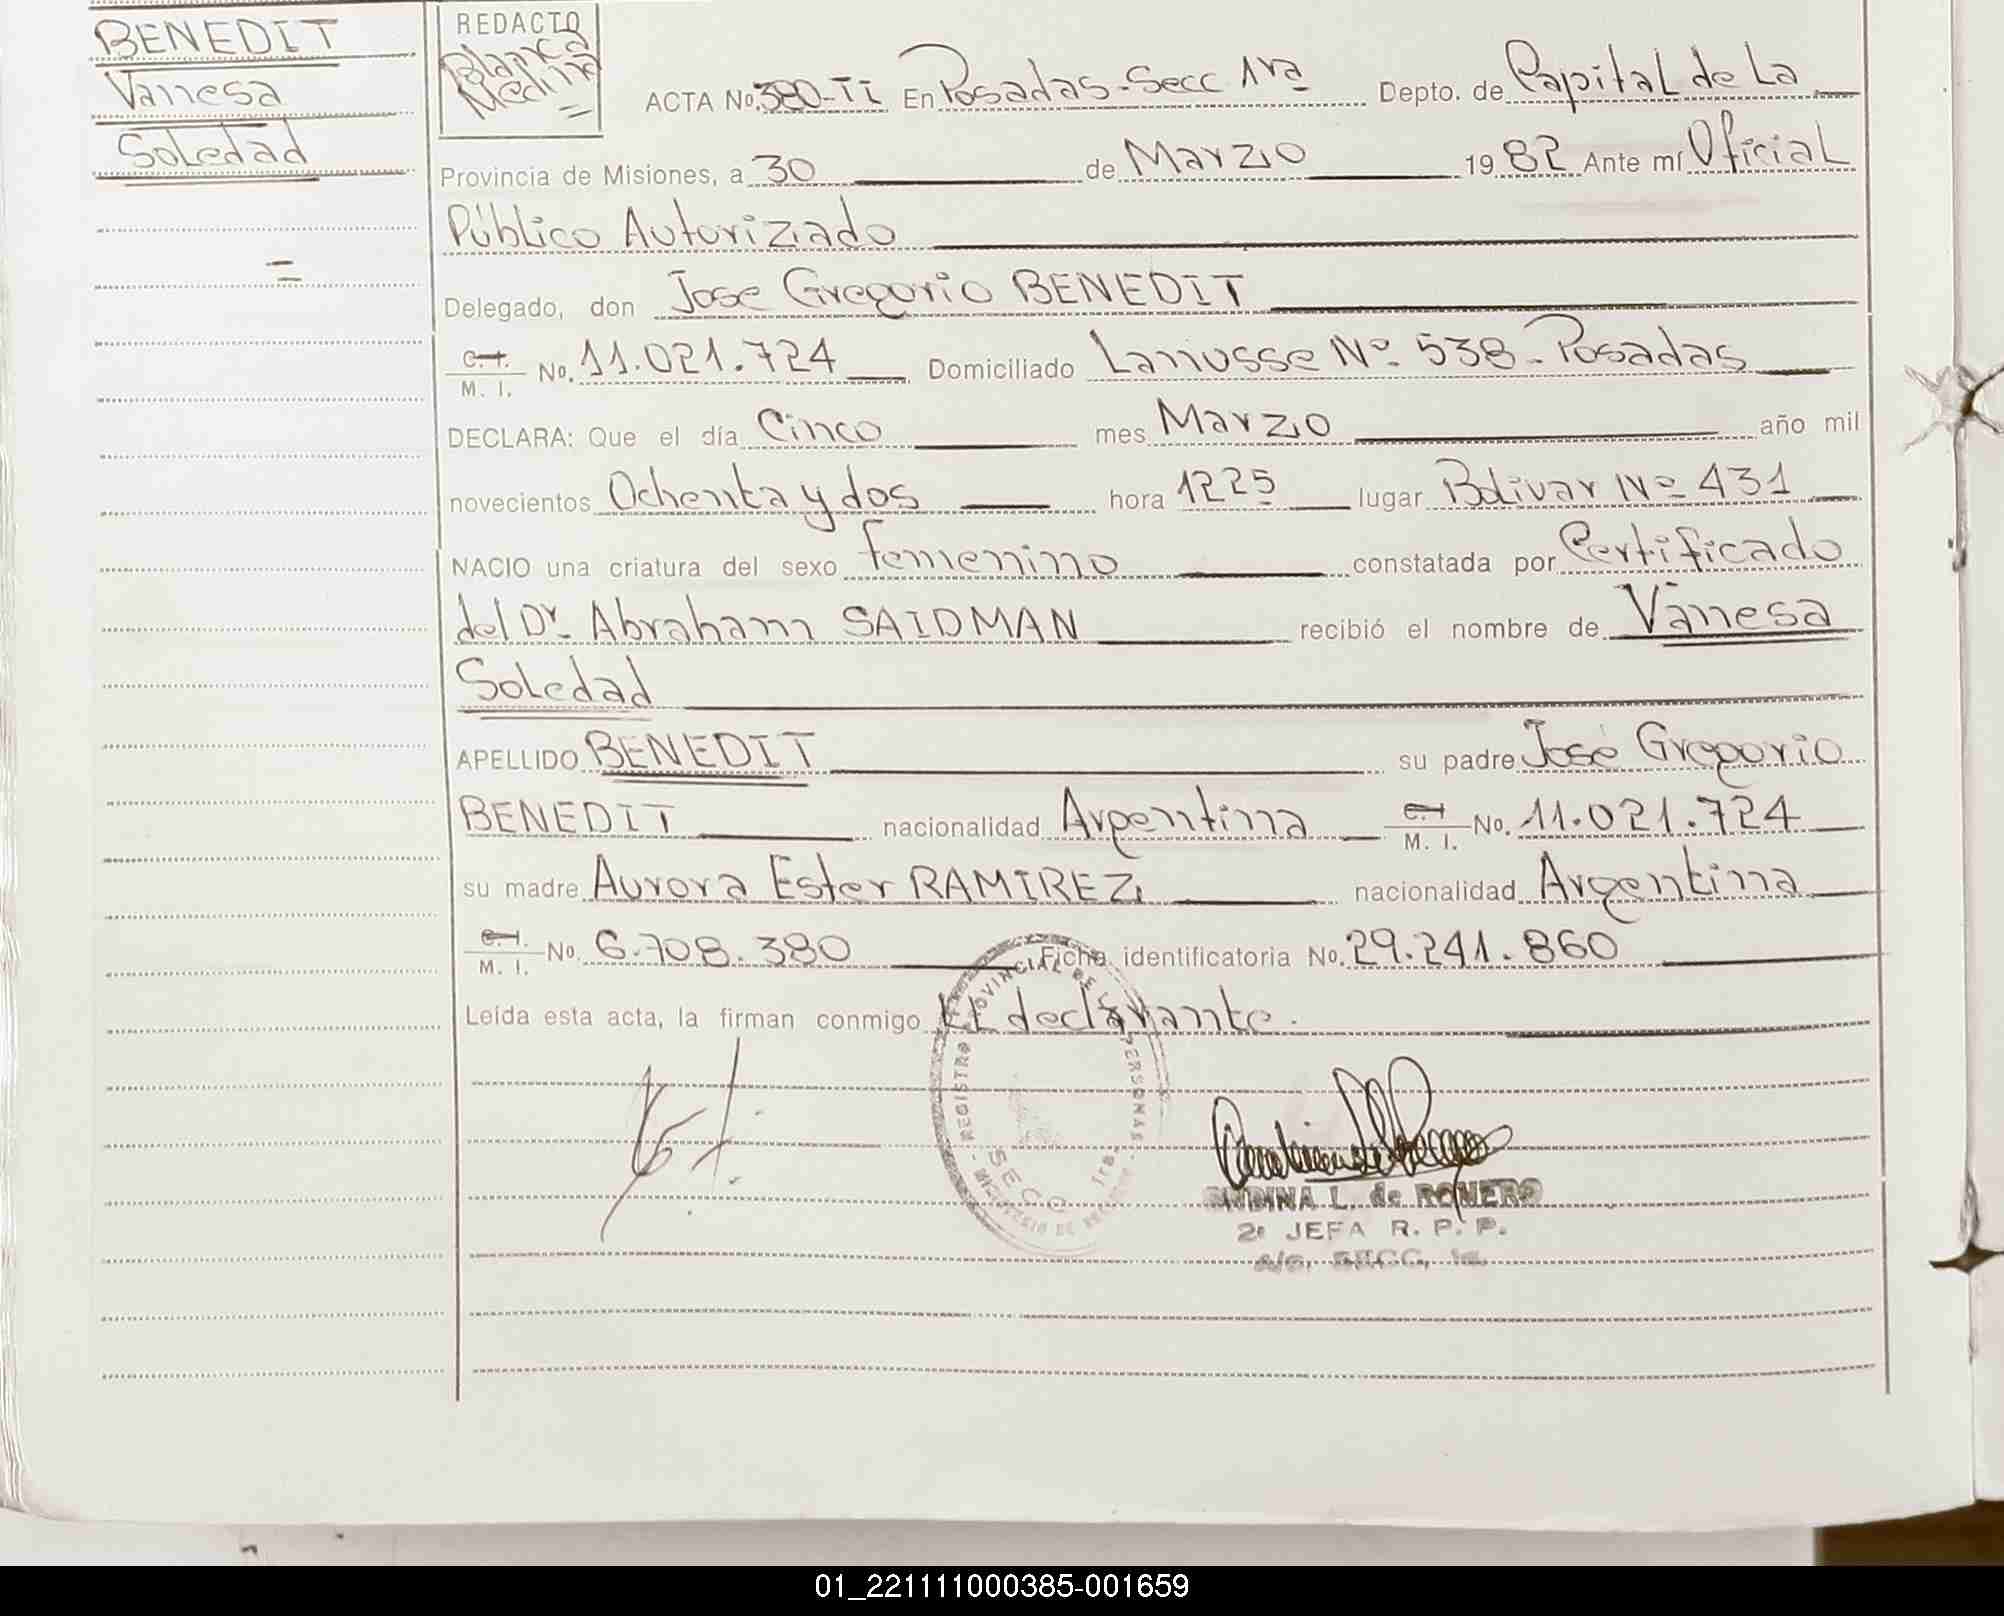 BENEDIT
Vanesa
Soledad
=
REDACTO
Blanca
Medina
=
ACTA No. 380-TI En Posadas-Secc 1ra Depto. de Capital de La
Provincia de Misiones, a 30 de Marzo 1982 Ante mí Oficial
Público Autorizado
Delegado, don Jose Gregorio BENEDIT
C. I.
M. I. No. 11.021.724 Domiciliado Lanusse Nº 538-Posadas
DECLARA: Que el día Cinco mes Marzo año mil
novecientos Ochenta y dos hora 1225 lugar Bolivar Nº 431
NACIO una criatura del sexo femenino constatada por Certificado
del Dr. Abraham SAIDMAN recibió el nombre de Vanesa
Soledad
APELLIDO BENEDIT su padre José Gregorio
BENEDIT nacionalidad Argentina C. I. M. I. No. 11.021.724
su madre Aurora Ester RAMIREZ nacionalidad Argentina
C. I.
M. I. No. 6.708.380 Ficha identificatoria No. 29.241.860
Leída esta acta, la firman conmigo El declarante.
REGISTRO PROVINCIAL DE LAS PERSONAS
SECC 1ra.
L. de ROMERO
2º JEFA R. P. P.
A/C. SECC. 1a.
01_221111000385-001659